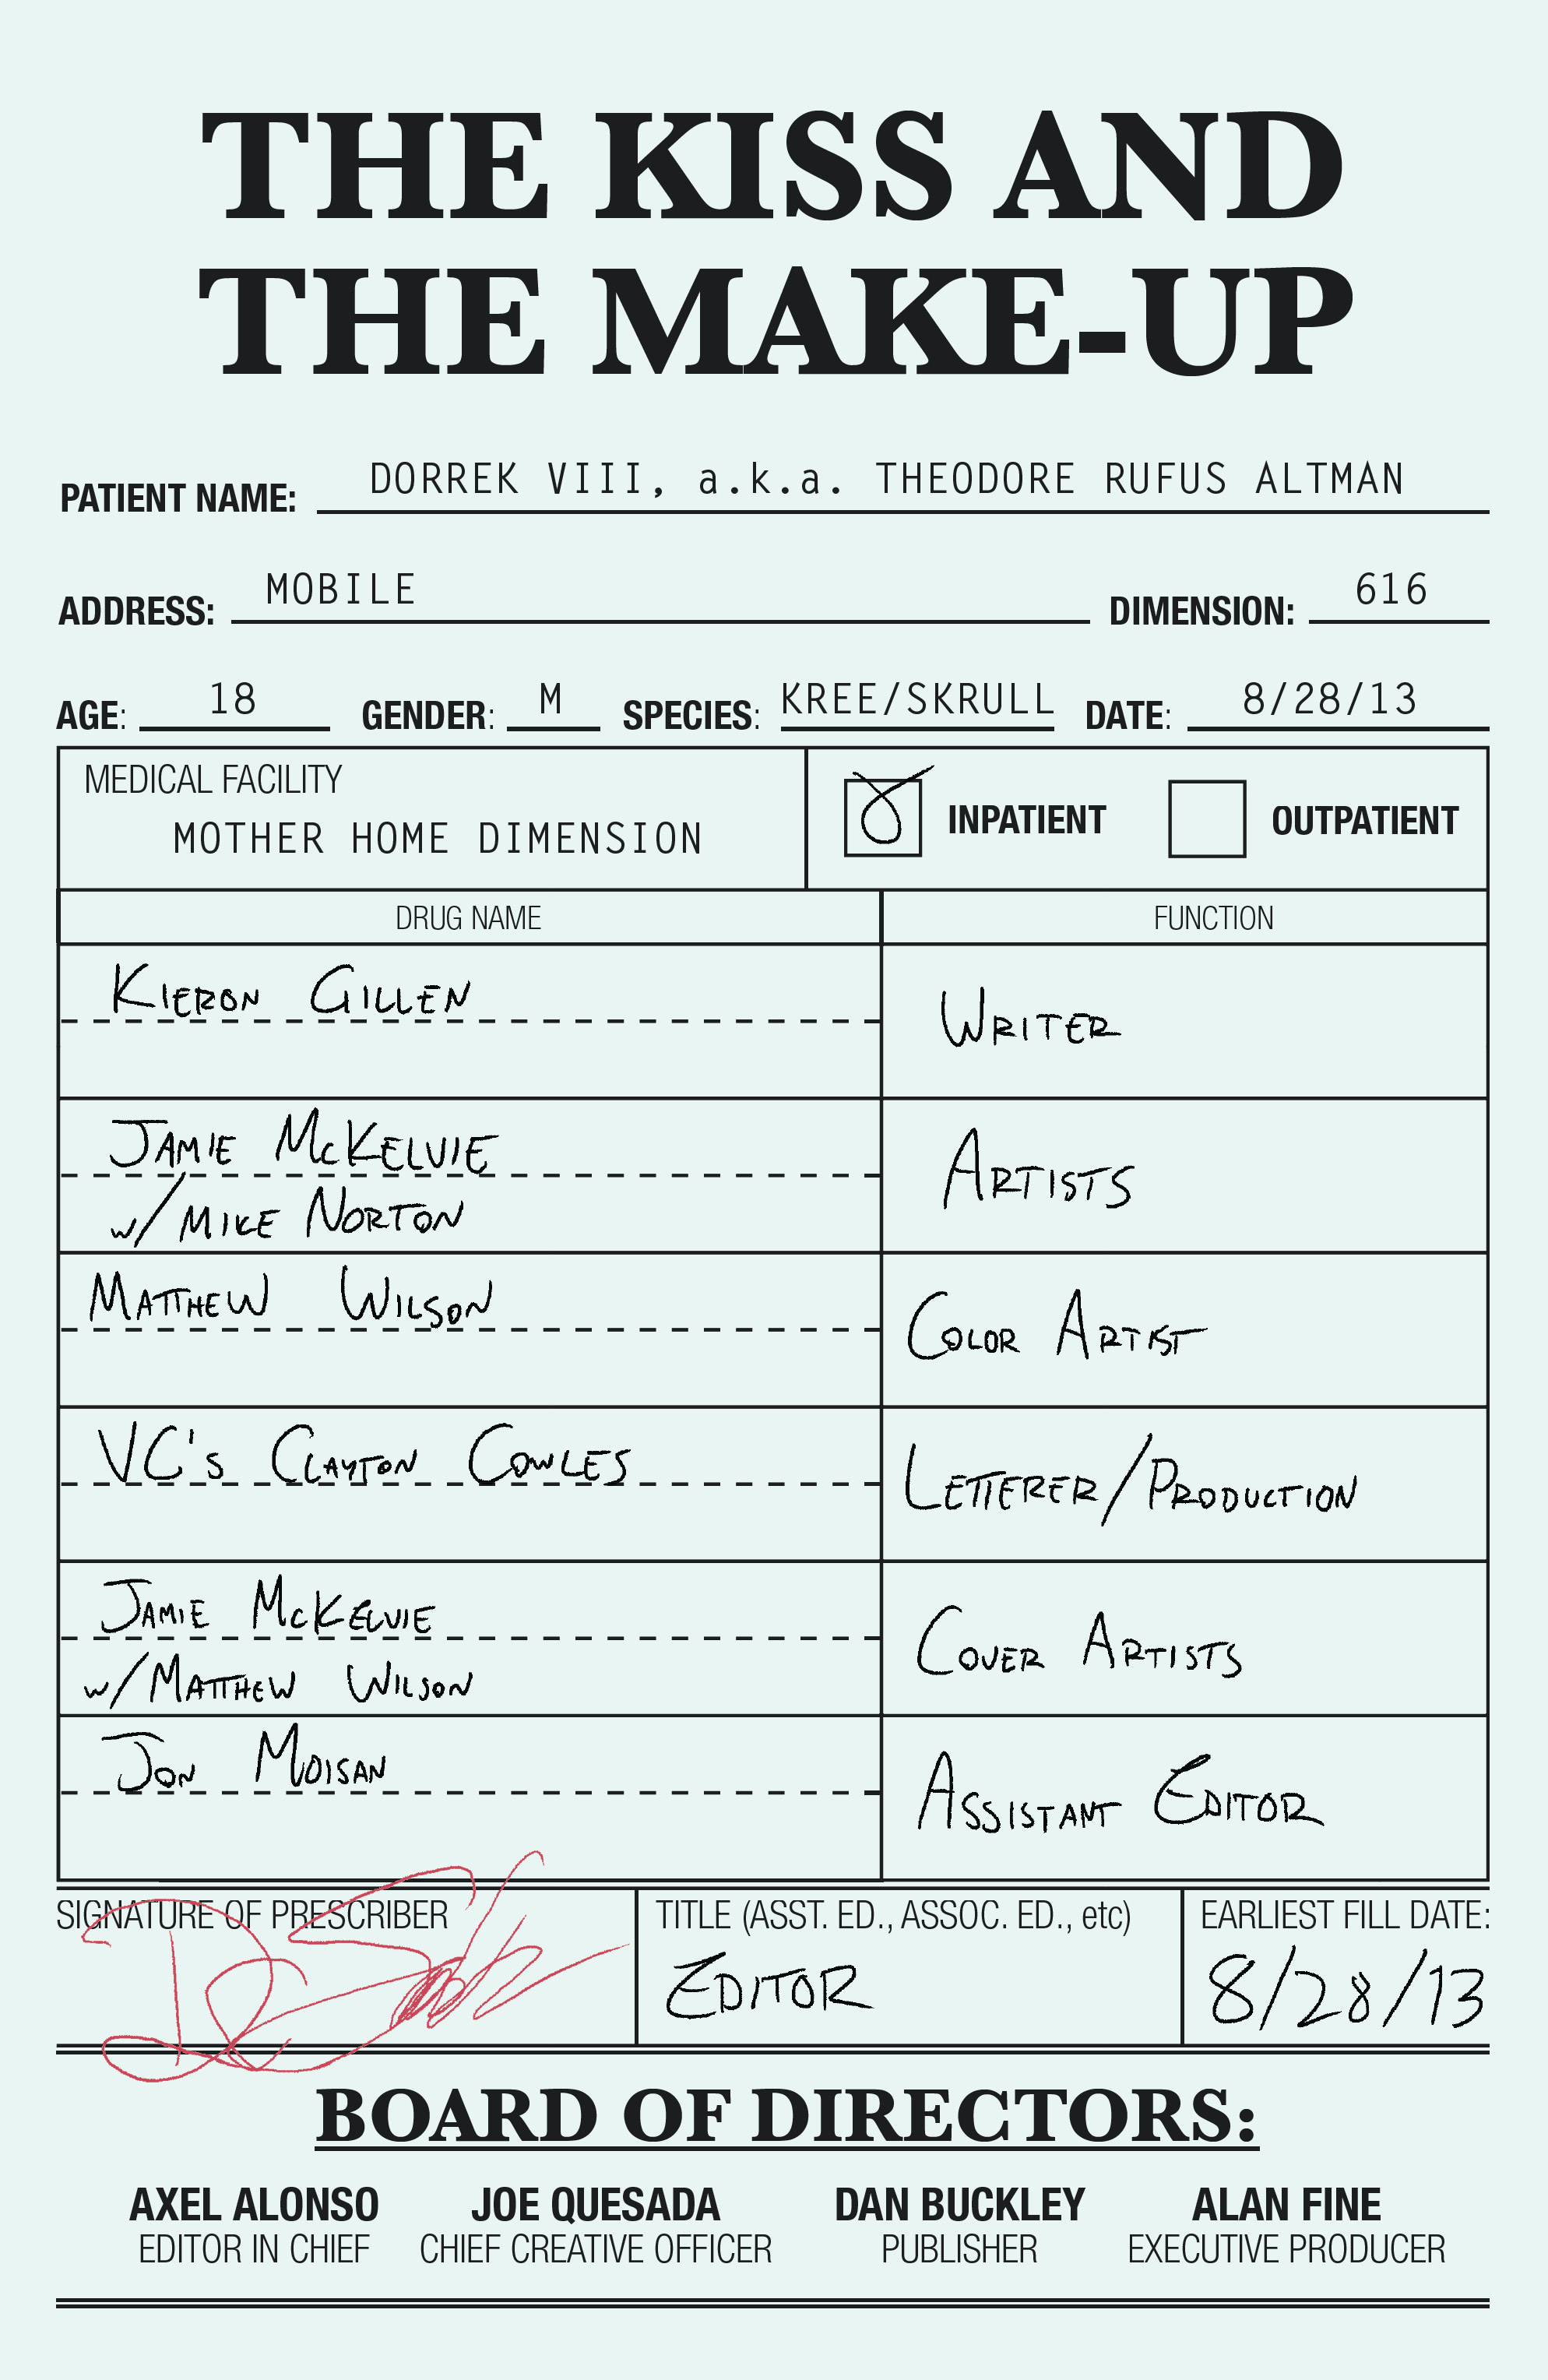 THE KISS AND
THE MAKE-UP
PATIENT NAME: DORREK VIII, a.k.a. THEODORE RUFUS ALTMAN
ADDRESS: MOBILE DIMENSION: 616
AGE: 18 GENDER: M SPECIES: KREE/SKRULL DATE: 8/28/13
MEDICAL FACILITY
MOTHER HOME DIMENSION
INPATIENT OUTPATIENT
DRUG NAME FUNCTION
KIERON GILLEN
WRITER
JAMIE McKELVIE
w/ MIKE NORTON
ARTISTS
MATTHEW WILSON
COLOR ARTIST
VC's CLAYTON COWLES
LETTERER/PRODUCTION
JAMIE McKELVIE
w/ MATTHEW WILSON
COVER ARTISTS
JON MOISAN
ASSISTANT EDITOR
SIGNATURE OF PRESCRIBER TITLE (ASST. ED., ASSOC. ED., etc) EARLIEST FILL DATE:
EDITOR 8/28/13
BOARD OF DIRECTORS:
AXEL ALONSO JOE QUESADA DAN BUCKLEY ALAN FINE
EDITOR IN CHIEF CHIEF CREATIVE OFFICER PUBLISHER EXECUTIVE PRODUCER